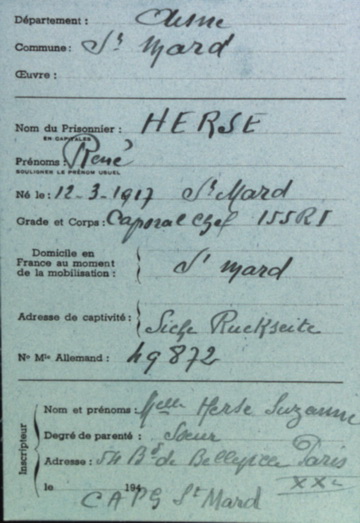 Département : Aisne
Commune : St Mard
Œuvre :
Nom du Prisonnier : HERSE
EN CAPITALES
Prénoms : René
SOULIGNER LE PRÉNOM USUEL
Né le : 12-3-1917 St Mard
Grade et Corps : Caporal chef 155 RI
Domicile en
France au moment
de la mobilisation :
St mard
Adresse de captivité :
Siehe Ruckseite
No Mle Allemand : 49872
Inscripteur
Nom et prénoms : Melle Herse Suzanne
Degré de parenté : Sœur
Adresse : 54 Bd de Belleville Paris
XXe
le 194
CAPG St Mard